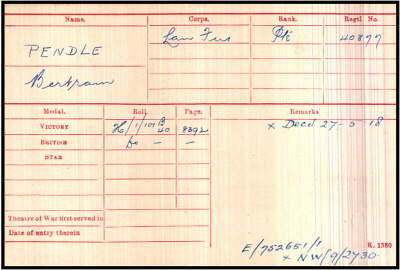 Name. Corps. Rank. Regtl. No.
PENDLE Lan Fus Pte 40877
Bertram
Medal. Roll. Page. Remarks
VICTORY H/1/107 B 40 8392 x Decd 27-5-18
BRITISH Do - -
STAR
Theatre of War first served in
Date of entry therein
K. 1380
E/752651/1
x NW/9/2730.